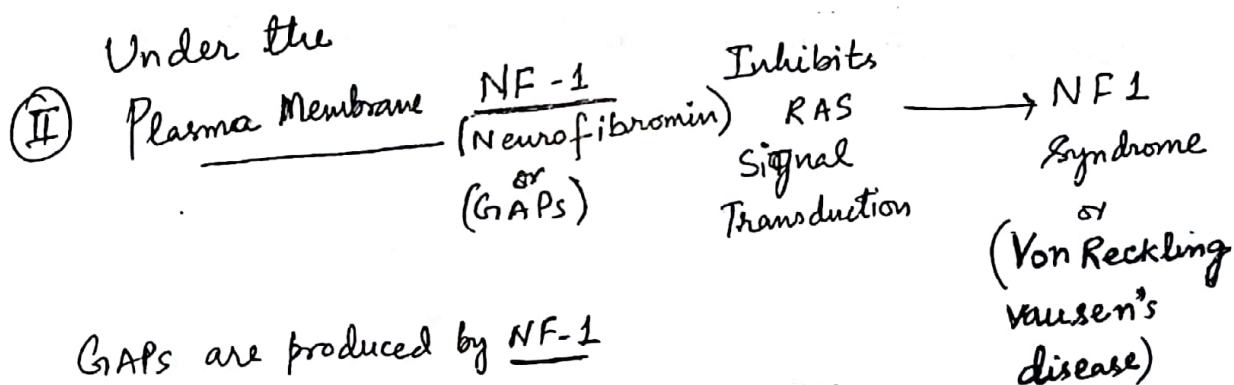 Under the
II Plasma Membrane
NF-1
(Neurofibromin)
or
(GAPs)
Inhibits
RAS
Signal
Transduction
NF1
Syndrome
or
(Von Reckling
vausen's
disease)
GAPs are produced by NF-1